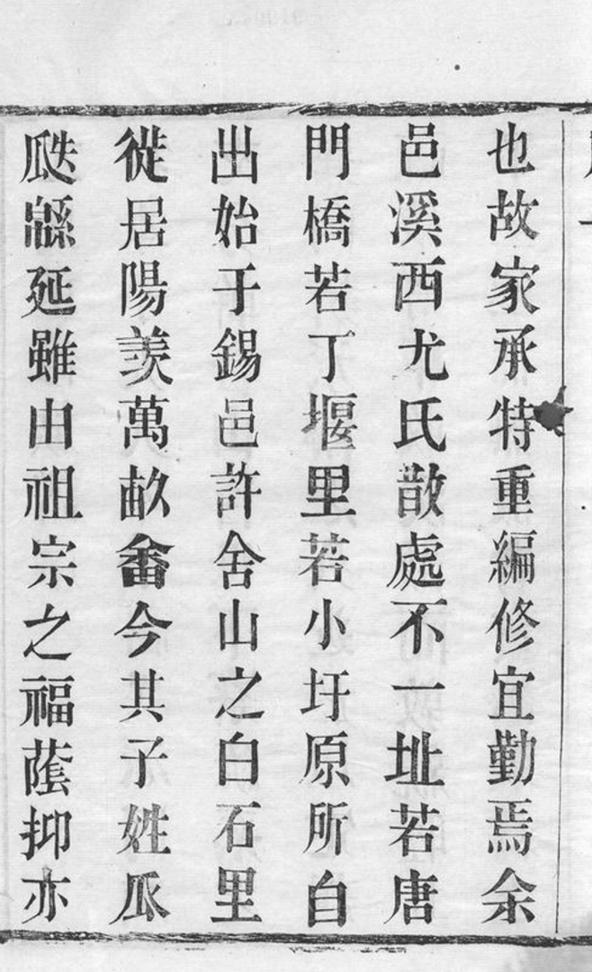 也故家承特重編修宜勤焉余
邑溪西尤氏散處不一址若唐
門橋若丁堰里若小圩原所自
出始于錫邑許舍山之白石里
徙居陽羨萬畝畬今其子姓瓜
瓞緜延雖由祖宗之福蔭抑亦